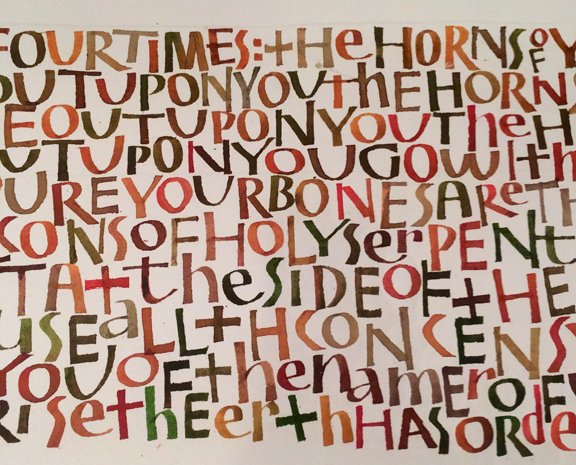 FOUR TIMES: tHe HORNS OF Y
OUT UPON YOU the HORNS
E OUT UPON YOU the H
UT UPON YOU GO WIth
URE YOUR BONES Are TH
CONS OF HOLY SerPENt
TA t the SIDE OF tHE
USE aLL tH CONCENS
YOU OF the name OF
RISe thE Eerth HAS ORde